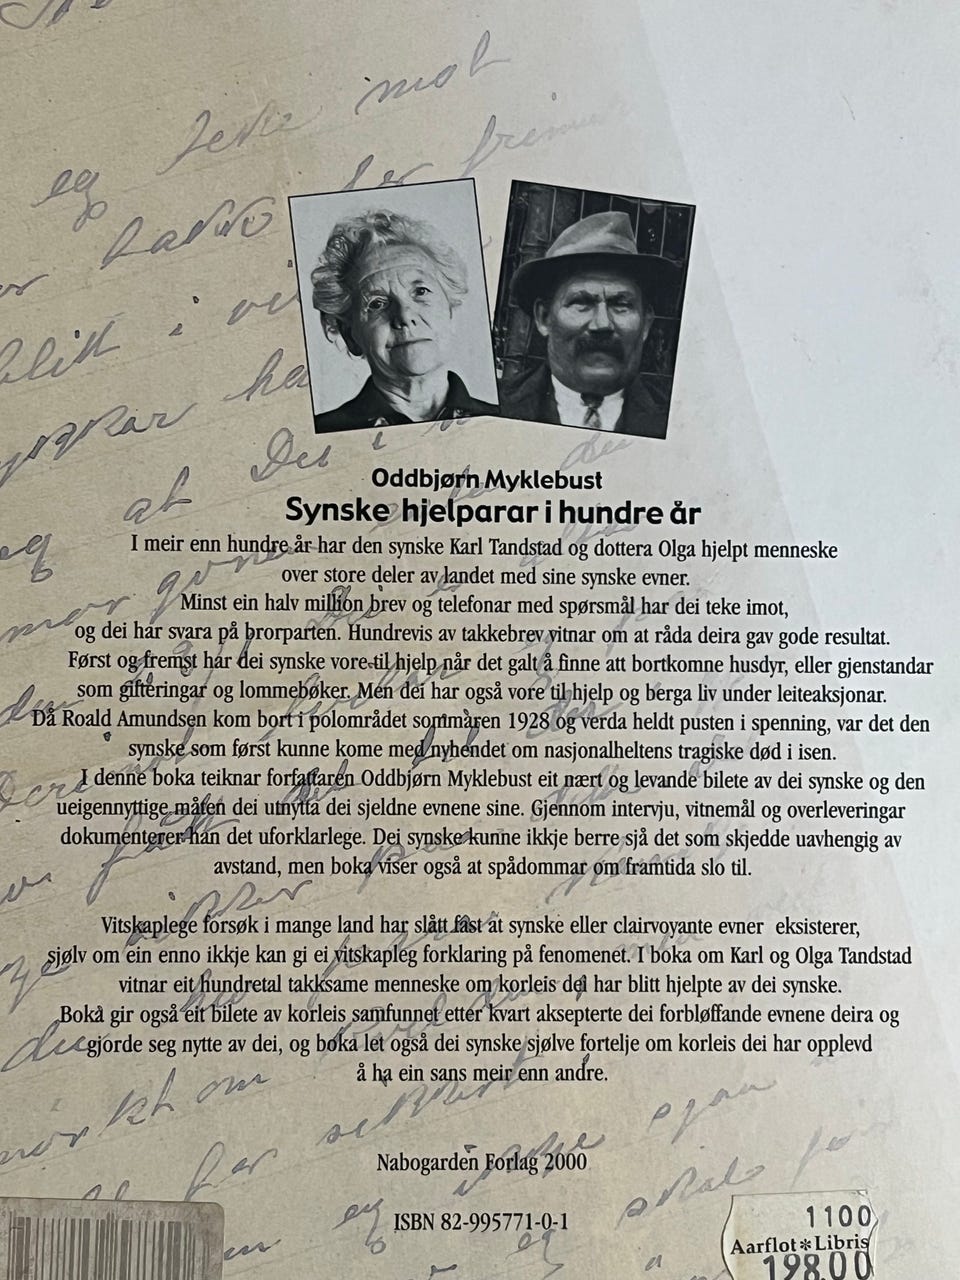 eg teke mot
takke for
blikk i
ha
at De i
eg
Oddbjørn Myklebust
Synske hjelparar i hundre år
I meir enn hundre år har den synske Karl Tandstad og dottera Olga hjelpt menneske
over store deler av landet med sine synske evner.
Minst ein halv million brev og telefonar med spørsmål har dei teke imot,
og dei har svara på brorparten. Hundrevis av takkebrev vitnar om at råda deira gav gode resultat.
Først og fremst har dei synske vore til hjelp når det galt å finne att bortkomne husdyr, eller gjenstandar
som gifteringar og lommebøker. Men dei har også vore til hjelp og berga liv under leiteaksjonar.
Då Roald Amundsen kom bort i polområdet sommaren 1928 og verda heldt pusten i spenning, var det den
synske som først kunne kome med nyhendet om nasjonalheltens tragiske død i isen.
I denne boka teiknar forfattaren Oddbjørn Myklebust eit nært og levande bilete av dei synske og den
ueigennyttige måten dei utnytta dei sjeldne evnene sine. Gjennom intervju, vitnemål og overleveringar
dokumenterer han det uforklarlege. Dei synske kunne ikkje berre sjå det som skjedde uavhengig av
avstand, men boka viser også at spådommar om framtida slo til.
Vitskaplege forsøk i mange land har slått fast at synske eller clairvoyante evner eksisterer,
sjølv om ein enno ikkje kan gi ei vitskapleg forklaring på fenomenet. I boka om Karl og Olga Tandstad
vitnar eit hundretal takksame menneske om korleis dei har blitt hjelpte av dei synske.
Boka gir også eit bilete av korleis samfunnet etter kvart aksepterte dei forbløffande evnene deira og
gjorde seg nytte av dei, og boka let også dei synske sjølve fortelje om korleis dei har opplevd
å ha ein sans meir enn andre.
Nabogarden Forlag 2000
ISBN 82-995771-0-1
1100
Aarflot*Libris
198.00